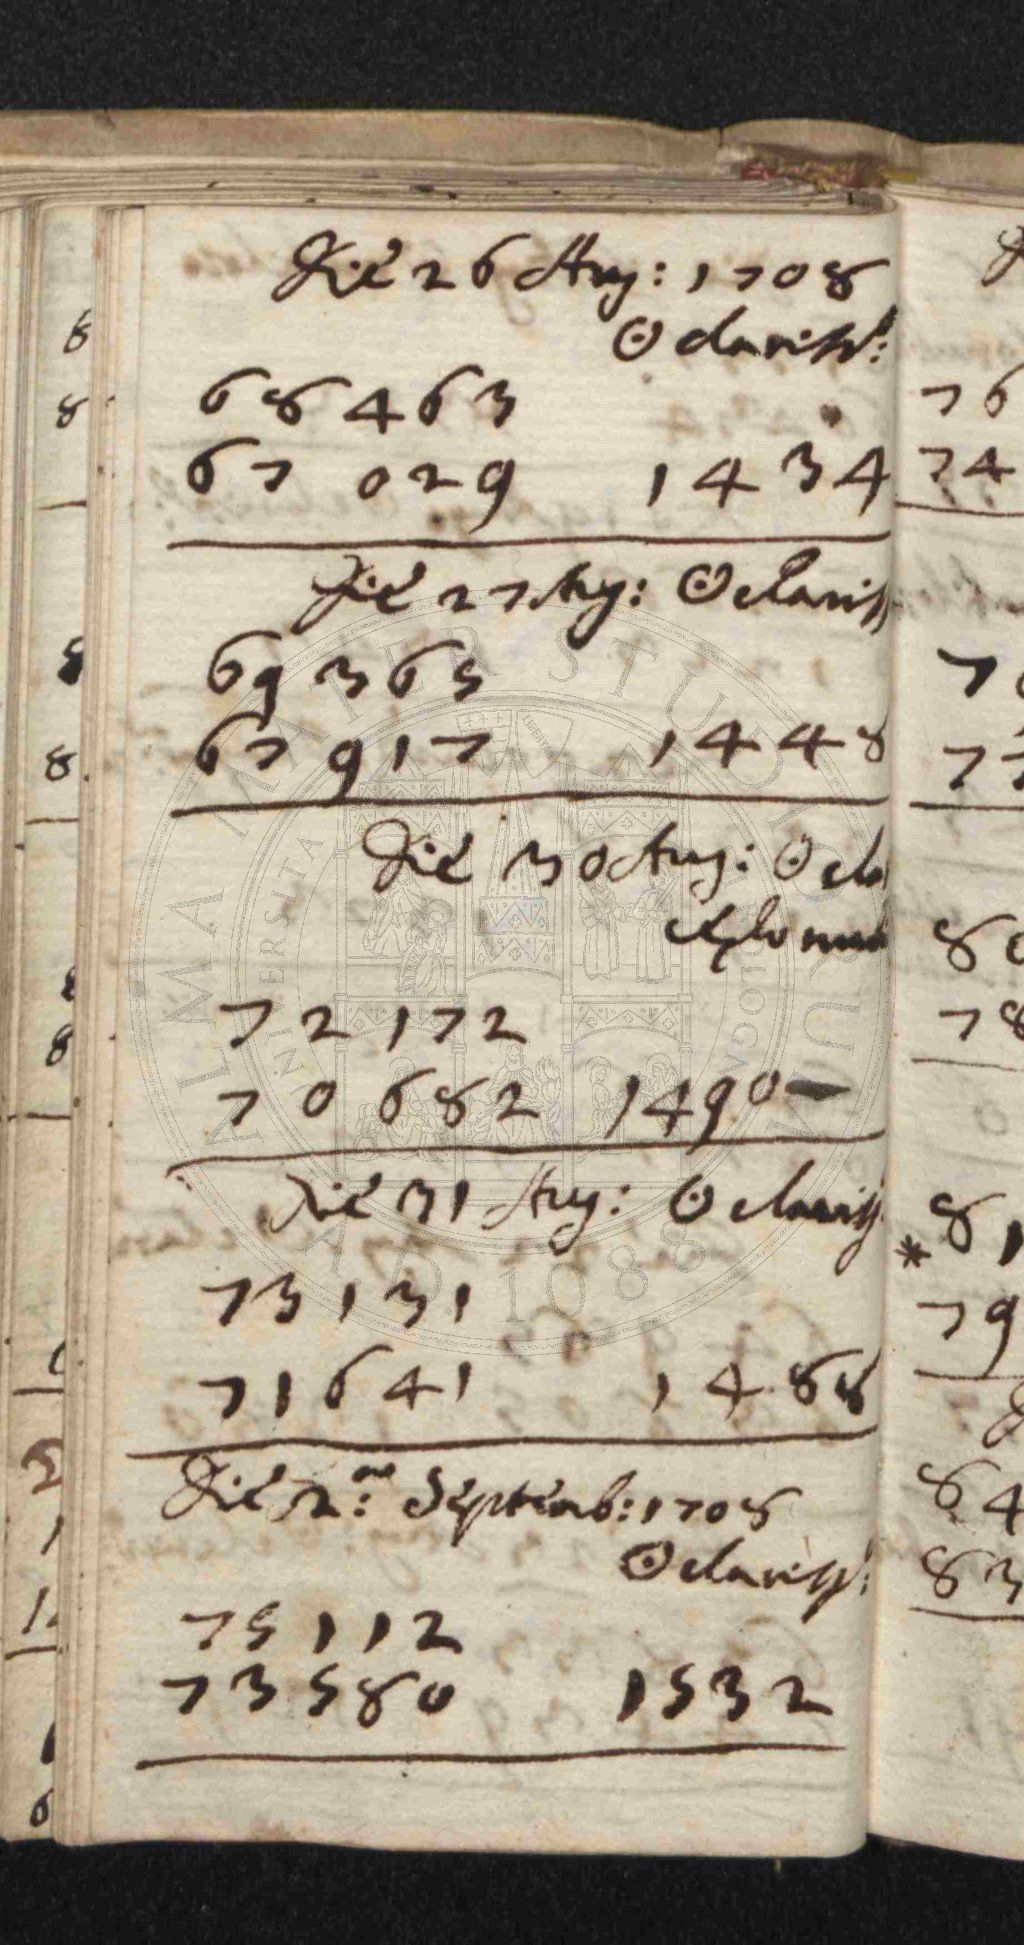 Die 26 Aug: 1708
☉ clariss:
68463
67 029 1434
Die 27 Aug: ☉ clariss
69365
67917 1448
Die 30 Aug: ☉ cla
72172
70682 1490
Die 31 Aug: ☉ clariss
73131
71641 1488
Die 2: Septemb: 1708
☉ clariss:
75112
73580 1532
76
74
7
77
80
78
* 81
79
84
83
ALMA MATER STUDIORUM
A.D. 1088